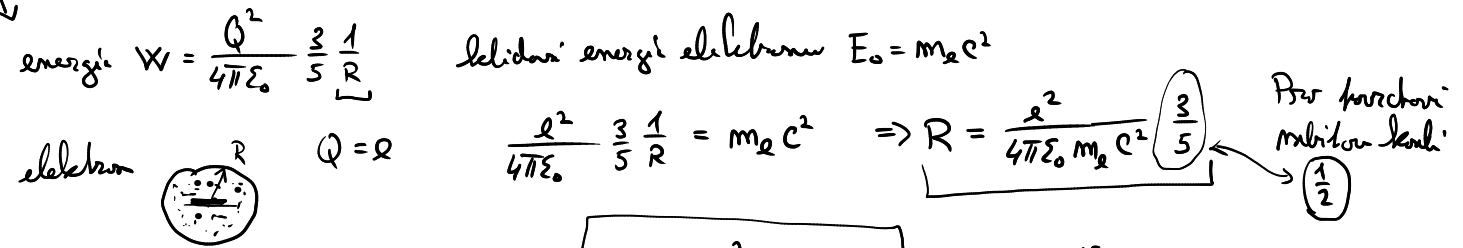 energie W = \frac{Q^2}{4\pi\varepsilon_0} \frac{3}{5} \frac{1}{R}
klidová energie elektronu E_0 = m_e c^2
elektron R Q = e
\frac{e^2}{4\pi\varepsilon_0} \frac{3}{5} \frac{1}{R} = m_e c^2 => R = \frac{e^2}{4\pi\varepsilon_0 m_e c^2} \frac{3}{5}
Pro povrchově
nabitou kouli
\frac{1}{2}